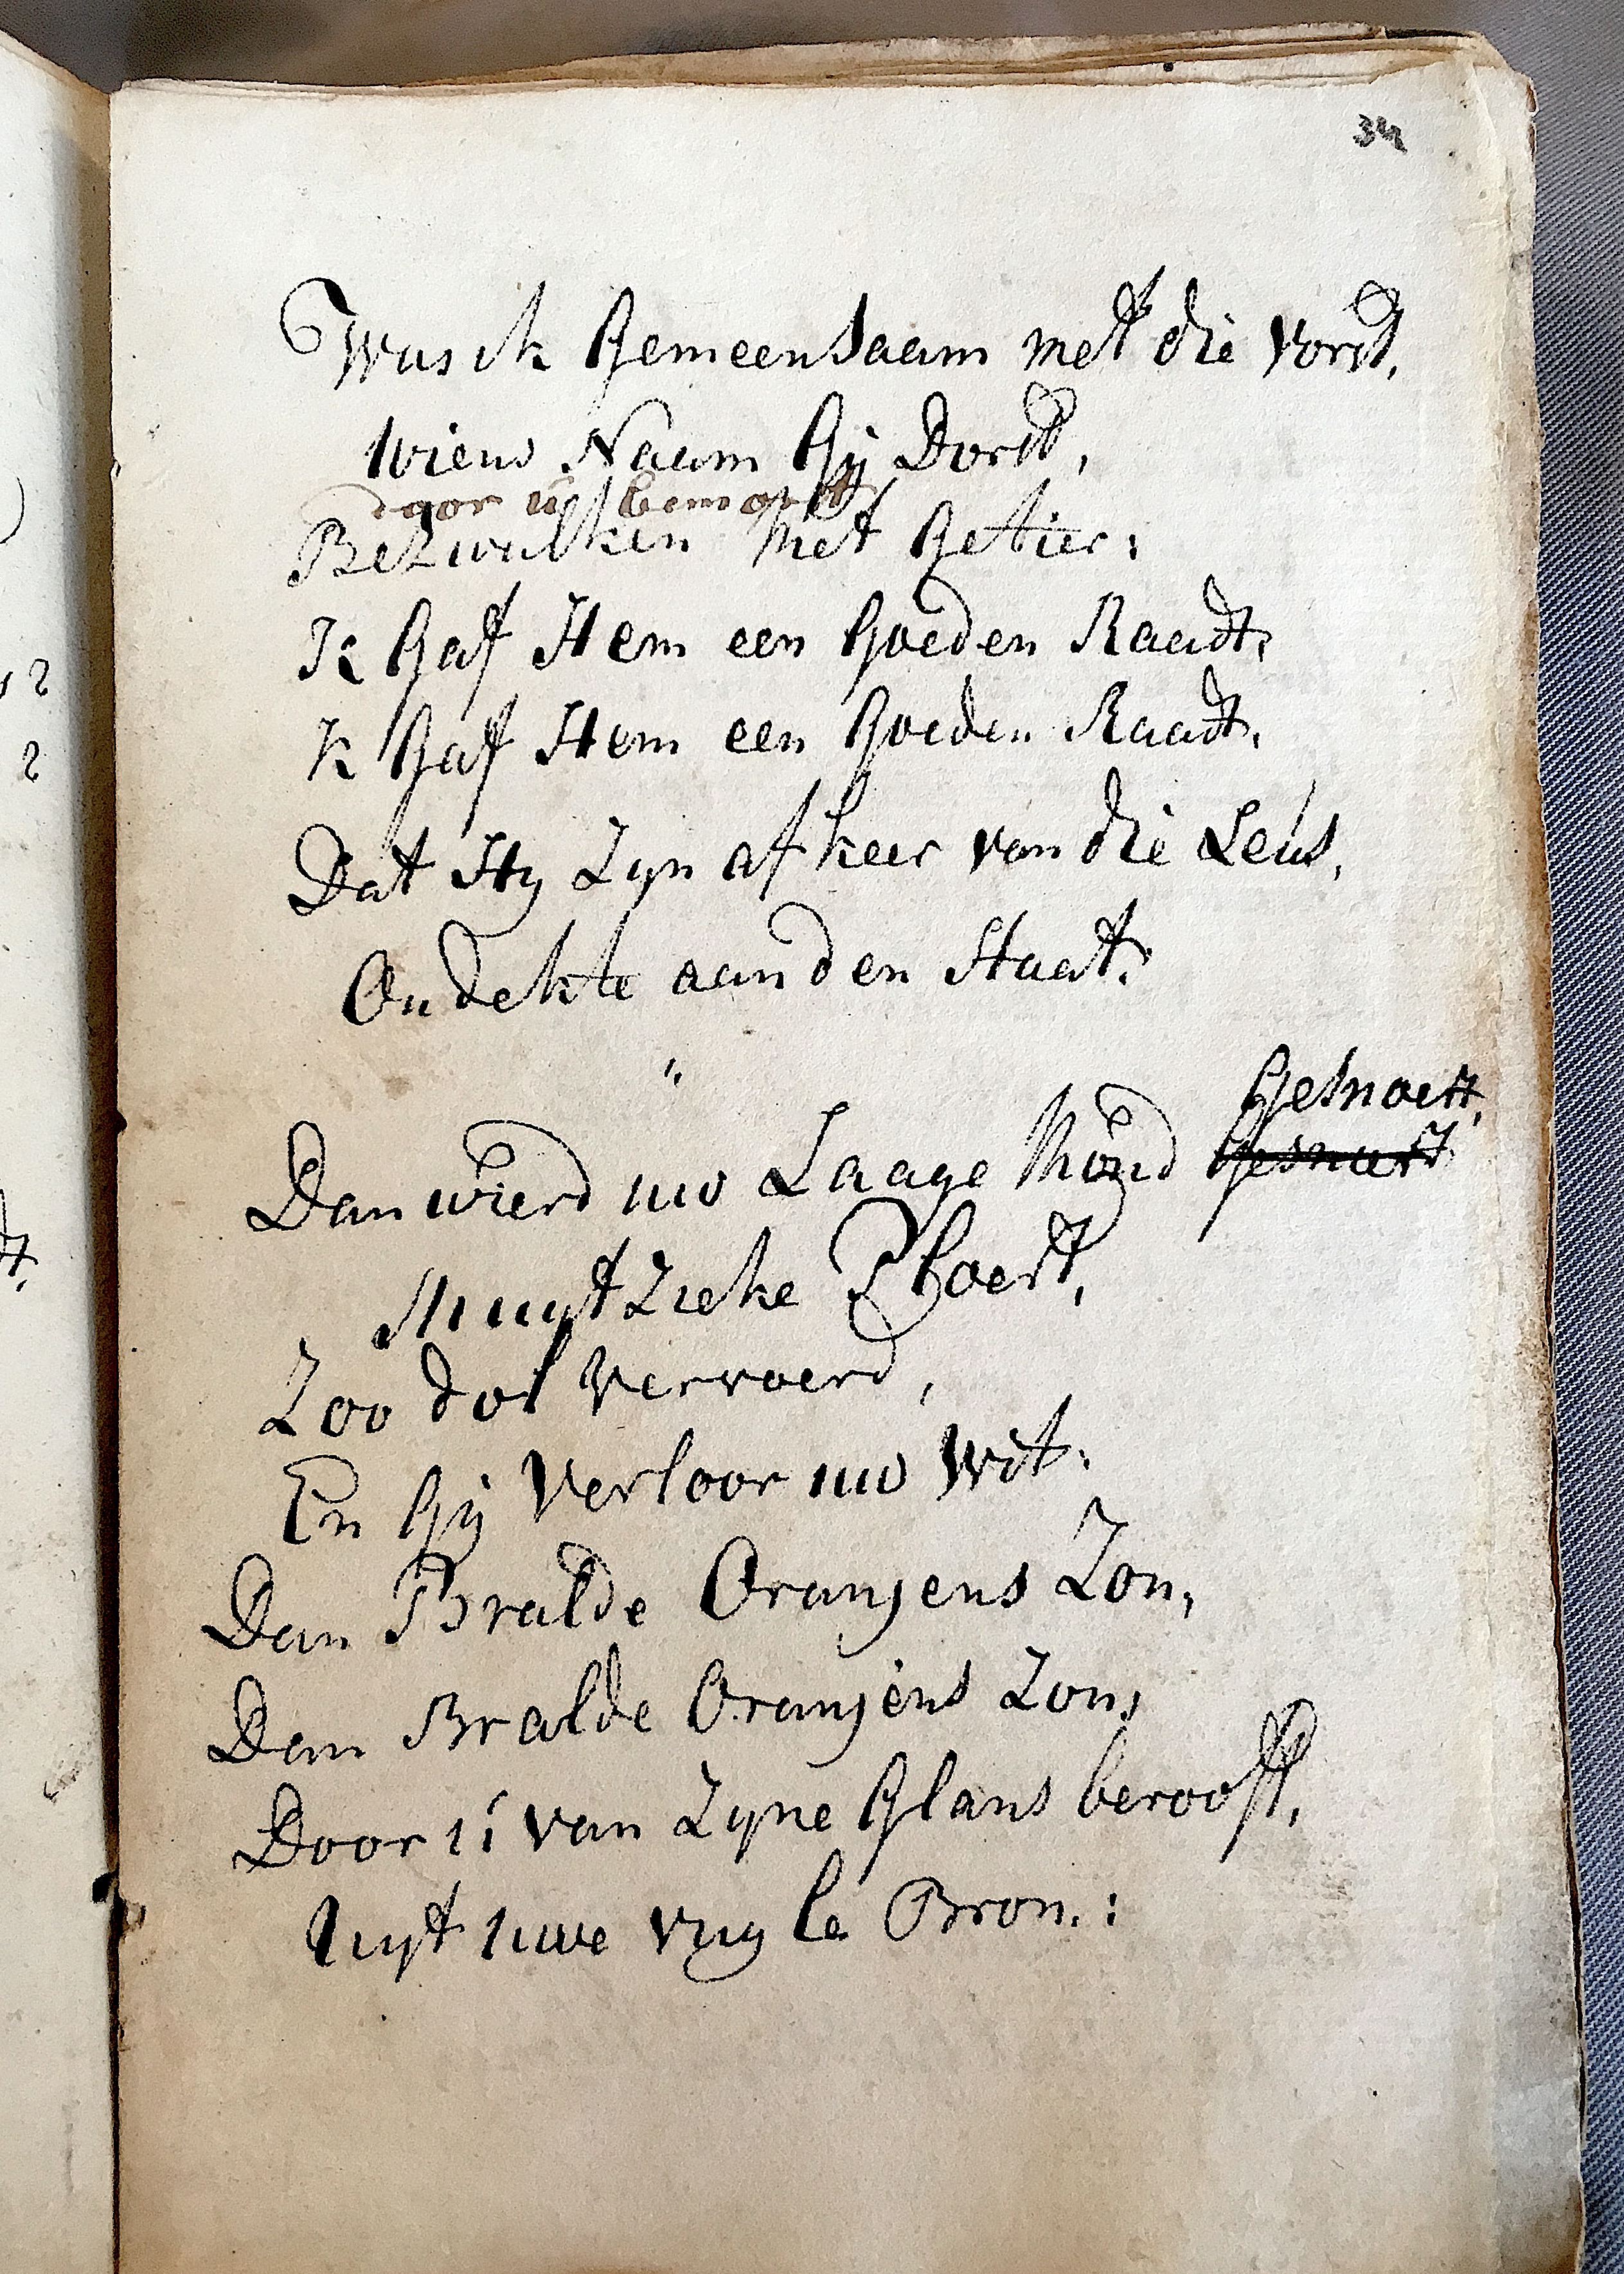 34
Was ik Gemeensaam met die vorst,
wiens Naam Gij Dorst,
door u bemorst
Bezwalken met Getier:
Ik Gaf Hem een Goeden Raadt,
k Gaf Hem een Goeden Raadt,
Dat Hy Zyn afkeer van die Leus,
Ondekte aan den Staat.
"
Gesnoert,
Dan wierd uw Laage Mond Gesnuert
Muytzieke Ploert,
Zoo dol vervoerd,
En Gij Verloor uw Wit:
Dan Bralde Oranjens Zon,
Dan Bralde Oranjens Zon,
Door ú van Zyne Glans berooft,
Uuyt uwe vuyle Bron.: